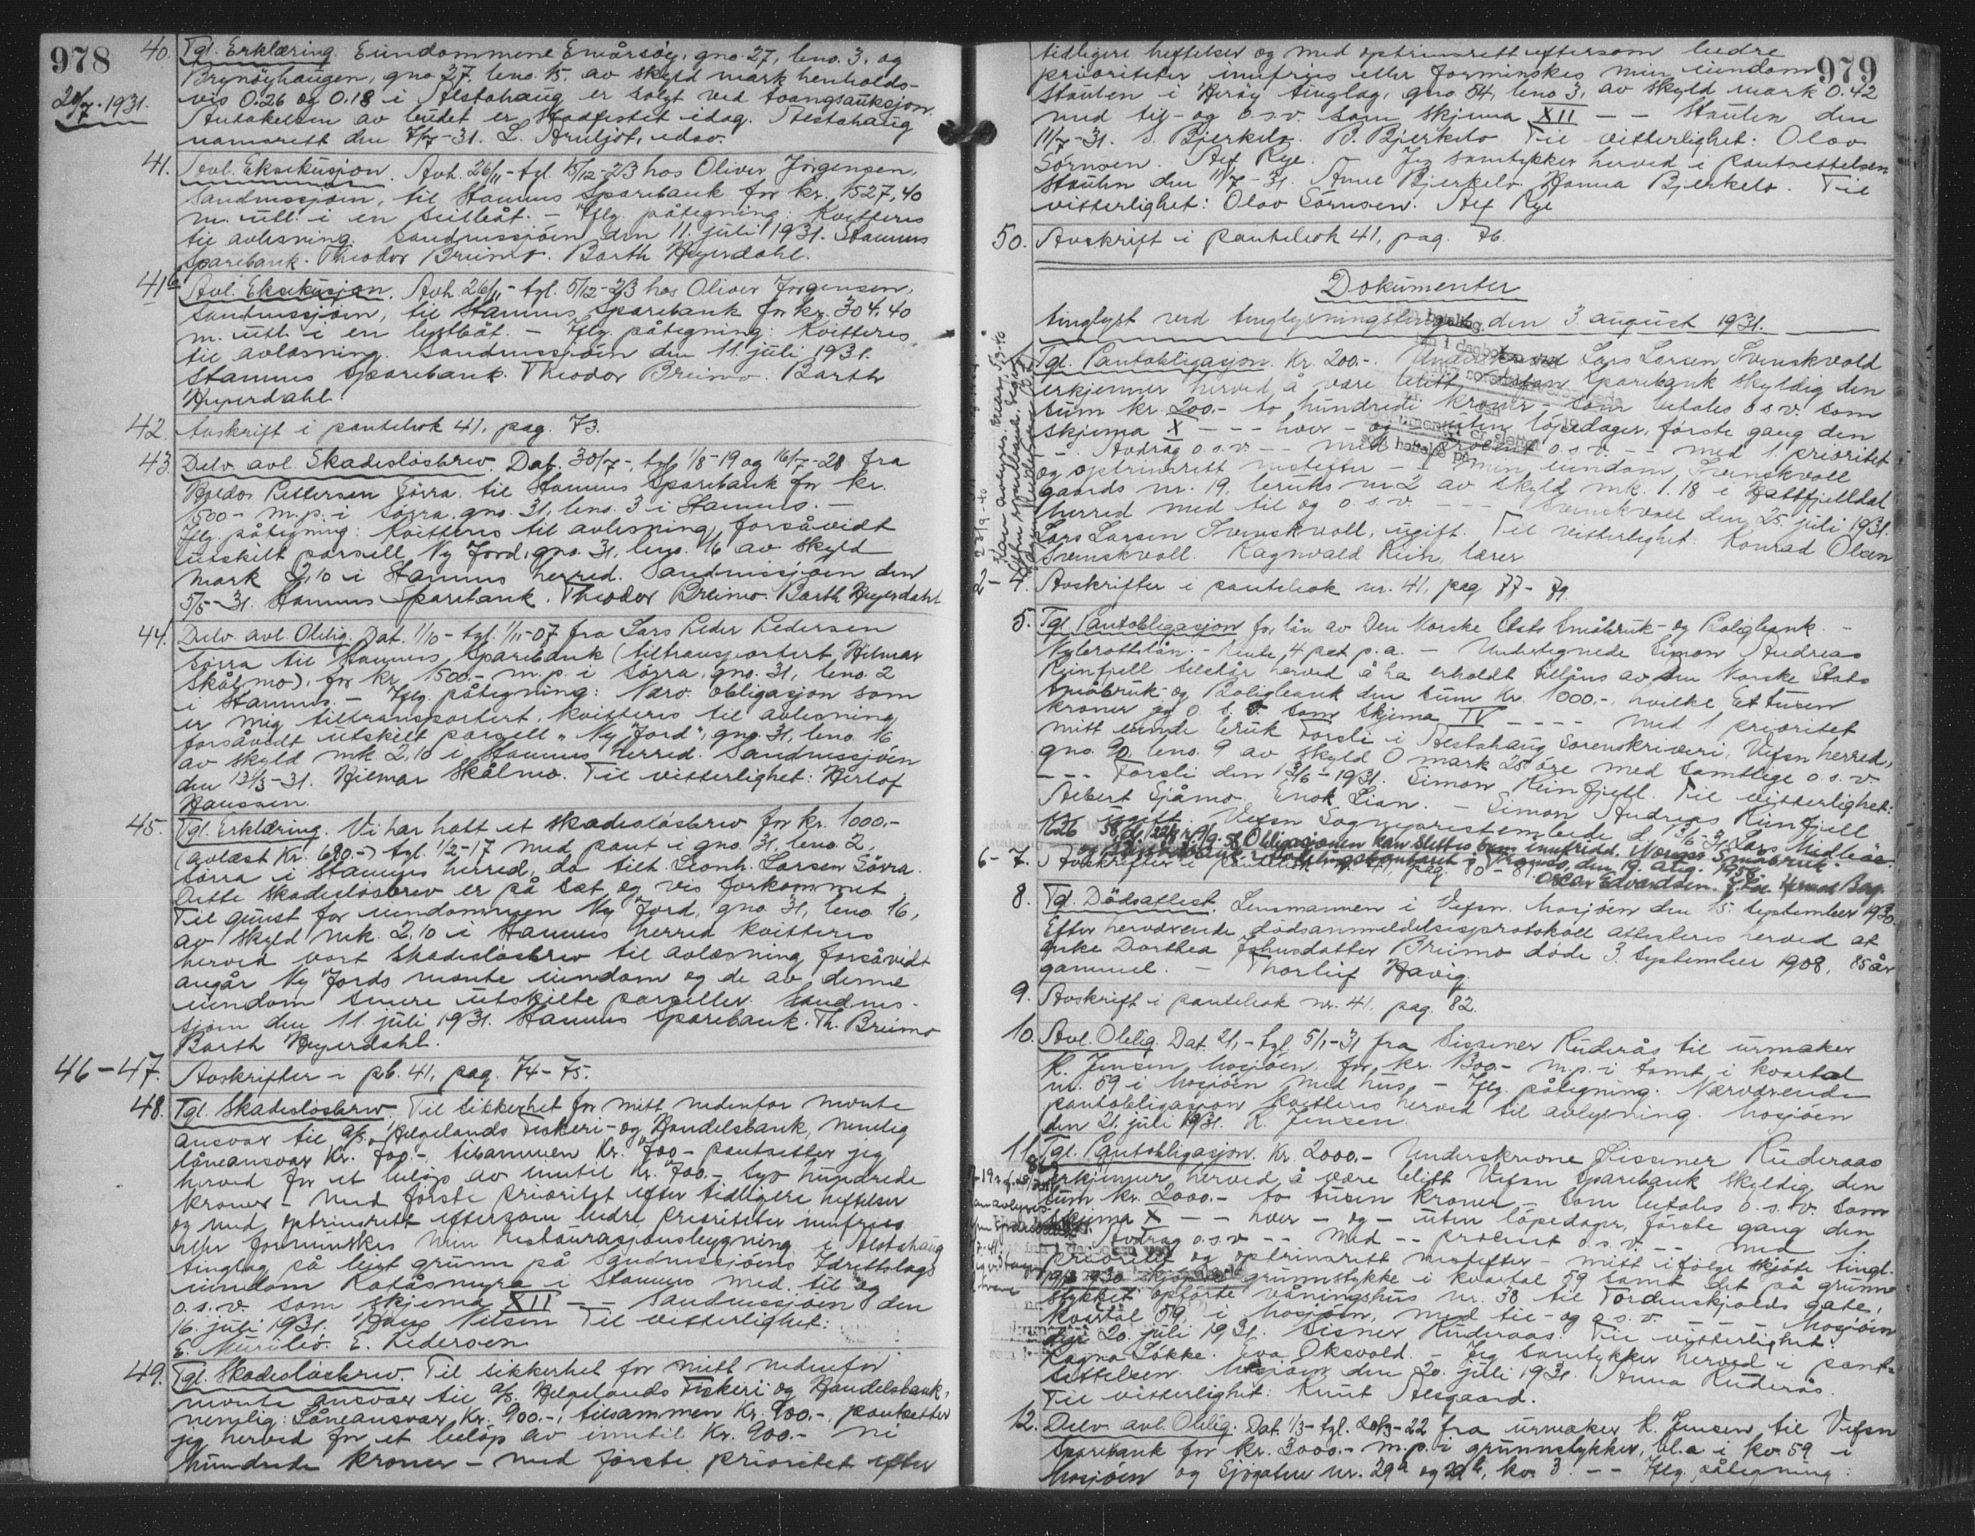 978
20/7-1931.
40. Tgl. Erklæring. Eiendommene Småvåg, gno. 27, bno. 3, og
Brynöyhaugen, gno. 27, bno. 15, av skyld mark henholds-
vis 0.26 og 0.18 i Alstahaug er solgt ved tvangsauksjon.
Antakelsen av budet er stadfestet idag. Alstahaug
namsrett den 7/7-31. L. Arntjöt, edsv.
41. Avl. Eksekusjon. Avh. 26/11 - tgl. 5/12-23 hos Oliver Jörgensen,
Sandnessjöen, til Stamnes Sparebank for kr. 1527,40
m. utl. i en seilbåt. - Iflg. påtegning: Kvitteres
til avlesning. Sandnessjöen den 11. juli 1931. Stamnes
Sparebank. Theodor Breimo. Barth Heyerdahl.
41b Avl. Eksekusjon. Avh. 26/11 - tgl. 5/12-23 hos Oliver Jörgensen,
Sandnessjöen, til Stamnes Sparebank for kr. 304,40
m. utl. i en lystbåt. - Iflg. påtegning: Kvitteres
til avlesning. Sandnessjöen den 11. juli 1931.
Stamnes Sparebank. Theodor Breimo. Barth
Heyerdahl.
42. Avskrift i pantebok 41, pag. 73.
43. Delv. avl. Skadeslösbrev. Dat. 30/7 - tgl. 1/8-19 og 16/7-28 fra
Pettersen Sörra til Stamnes Sparebank for kr.
1500.- m.p. i Sörra, gno. 31, bno. 3 i Stamnes. -
Iflg. påtegning: Kvitteres til avlesning forsåvidt
utskilt parsell Ny Jord, gno. 31, bno. 16 av skyld
mark 2,10 i Stamnes herred. Sandnessjöen den
5/5-31. Stamnes Sparebank. Theodor Breimo. Barth Heyerdahl.
44. Delv. avl. Oblig. Dat. 1/10 - tgl. 1/11-07 fra Lars Peder Pedersen
Sörra til Stamnes Sparebank (tiltransportert Hilmar
Skålmo), for kr. 1500.- m.p. i Sörra, gno. 31, bno. 2
i Stamnes. - Iflg. påtegning: Nærv. obligasjon som
er mig tiltransportert, kvitteres til avlesning
forsåvidt utskilt parsell "Ny Jord", gno. 31, bno. 16
av skyld mk. 2,10 i Stamnes herred. Sandnessjöen
den 13/3-31. Hilmar Skålmo. Til vitterlighet: Herlof
Hanssen.
45. Tgl. Erklæring. Vi har hatt et skadeslösbrev for kr. 1000.-
(avlæst kr. 680.-) tgl. 1/2-17 med pant i gno. 31, bno. 2,
Sörra i Stamnes herred, da tilh. Leonh. Larsen Sörra.
Dette skadeslösbrev er på sæt og vis forkommet.
Til gunst for eiendommen Ny Jord, gno. 31, bno. 16,
av skyld mk. 2,10 i Stamnes herred kvitteres
herved vort skadeslösbrev til avlæsning forsåvidt
angår Ny Jords nævnte eiendom og de av denne
eiendom senere utskilte parseller. Sandnes-
sjöen den 11. juli 1931. Stamnes Sparebank. Th. Breimo
Barth Heyerdahl.
46-47. Avskrifter i pb. 41, pag. 74-75.
48. Tgl. Skadeslösbrev. Til sikkerhet for mitt nedenfor nevnte
ansvar til A/S Helgelands Fiskeri- og Handelsbank, nemlig
låneansvar kr. 700.-, tilsammen kr. 700.- pantsetter jeg
herved for et belöp av inntil kr. 700.- syv hundrede
kroner - med förste prioritet efter tidligere heftelser
og med optrinsrett eftersom bedre prioriteter innfries
eller forminskes min restaurasjonsbygning i Alstahaug
tinglag på leiet grunn på Sandnessjöens Idrettslags
eiendom Ratåsmyra i Stamnes med til og
o.s.v. som skjema XII - - Sandnessjöen den
16. juli 1931. Hans Nilsen. Til vitterlighet:
E. Pedersen
49. Tgl. Skadeslösbrev. Til sikkerhet for mitt nedenfor
nevnte ansvar til A/S Helgelands Fiskeri og Handelsbank,
nemlig: Låneansvar kr. 900.-, tilsammen kr. 900.-, pantsetter
jeg herved for et belöp av inntil kr. 900.- ni
hundrede kroner - med förste prioritet efter
979
tidligere heftelser og med optrinsrett eftersom bedre
prioriteter innfries eller forminskes min eiendom
Stauten i Heröy tinglag, gno. 54, bno. 3, av skyld mark 0.42
med til- og o.s.v. som skjema XII - - Stauten den
11/7-31. S. Bjerkelo. P. Bjerkelo. Til vitterlighet: Olav
Sörnsen. Alf Rye. - Jeg samtykker herved i pantsettelsen.
Stauten den 11/7-31. Anne Bjerkelo. Hanna Bjerkelo. Til
vitterlighet: Olav Sörnsen. Alf Rye
50. Avskrift i pantebok 41, pag. 76.
Dokumenter
tinglyst ved tinglysningslaget den 3. august 1931.
Tgl. Pantobligasjon. Kr. 200.-. Lars Larsen Svenskvold
erkjenner herved å være blitt Sparebank skyldig den
sum kr. 200.- to hundrede kroner - som betales o.s.v. som
skjema X - - - hver - og - uten löpedager, förste gang den
- - Avdrag o.s.v. - - med - - procent o.s.v. - - med 1. prioritet
og optrinsrett næstefter - - min eiendom Svenskvoll
gaards nr. 19, bruks nr. 2 av skyld mk. 1.18 i Hattfjelldal
herred med til og o.s.v. - - - Svenskvoll den 25. juli 1931.
Lars Larsen Svenskvoll, ugift. Til vitterlighet: Konrad Olsen
Svenskvoll. Ragnvald Rein, lærer
2-4. Avskrifter i pantebok nr. 41, pag. 77-79.
5. Tgl. Pantobligasjon for lån av Den Norske Stats Småbruk- og Boligbank. -
Nybrottslån. - Rente 4 pct p.a. - Undertegnede Simon Andreas
Reinfjell tilstår herved å ha erholdt tillåns av Den Norske Stats
Småbruk- og Boligbank den sum kr. 1000.-, hvilke Et tusen
kroner jeg o.s.v. som skjema IV - - - - med 1. prioritet
mitt eiende bruk Forsli i Alstahaug Sorenskriveri, Vefsn herred,
gno. 90 bno. 9 av skyld 0 mark 25 öre med samtlige o.s.v.
- - - Forsli den 13/6-1931. Simon Reinfjell. Til vitterlighet:
Albert Sjåmo. Enok Lian. - Simon Andreas Reinfjell
er ugift. Vefsn Sogneprestembede d. 13/6-31. Lars Midböe.
1626 58, Obligasjonen kan slettes som innfridd. Norges Småbruk-
og Boligbank, avdelingskontoret i Tromsö, den 19. aug. 1958.
Oscar Edvardsen.
6-7. Avskrifter i pantebok nr. 41, pag. 80-81.
8. Tgl. Dödsattest. Lensmannen i Vefsn. Mosjöen den 15. September 1930.
Efter herværende dödsanmeldelsesprotokoll attesteres herved at
enke Dorthea Johnsdatter Breimo döde 3. September 1908, 85 år
gammel. - Thorleif Havig.
9. Avskrift i pantebok nr. 41, pag. 82.
10. Avl. Oblig. Dat. 2/1, - tgl. 5/1-31 fra Sissener Ruderås til urmaker
R. Jensen, Mosjöen, for kr. 1300.- m.p. i tomt i kvartal
nr. 59 i Mosjöen med hus. - Iflg. påtegning: Nærværende
pantobligasjon kvitteres herved til avlysning. Mosjöen
den 21. juli 1931. R. Jensen
11. Tgl. Pantobligasjon. Kr. 2000.- Underskrevne Sissener Ruderaas
erkjenner herved å være blitt Vefsn Sparebank skyldig den
sum kr. 2000.- to tusen kroner - som betales o.s.v. som
skjema X - - hver - og - uten löpedager, förste gang den
- - Avdrag o.s.v. - - med - - procent o.s.v. - - med
prioritet og optrinsrett næstefter - mitt ifölge skjöte tingl.
1930 grunnstykke i kvartal 59 samt det på grunn-
stykket opförte våningshus nr. 38 til Tordenskjolds gate,
kvartal 59, i Mosjöen, med til- og o.s.v. - - Mosjöen
den 20. juli 1931. Sisner Ruderaas. Til vitterlighet:
Ragna Lökke. Eva Oksvold. - Jeg samtykker herved i pant-
settelsen. Mosjöen den 20. juli 1931. Anna Ruderås.
Til vitterlighet: Knut Alsgaard.
12. Delv. avl. Oblig. Dat. 1/3 - tgl. 20/3-22 fra urmaker R. Jensen til Vefsn
Sparebank for kr. 3000.- m.p. i grunnstykker, bl.a. i kv. 59 i
Mosjöen og Sjögaten nr. 29a og 29b, kv. 3. - - Iflg. påtegning: